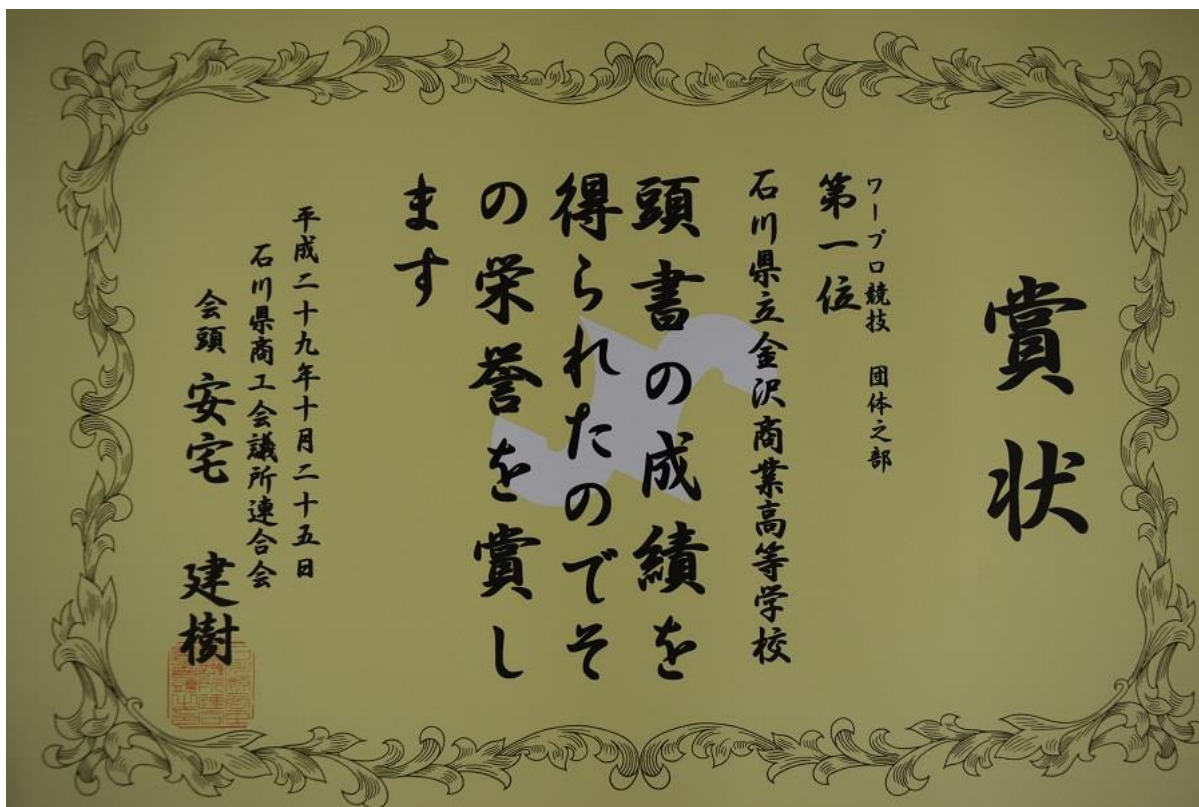 賞状
ワープロ競技 団体之部
第一位
石川県立金沢商業高等学校
頭書の成績を
得られたのでそ
の栄誉を賞し
ます
平成二十九年十月二十五日
石川県商工会議所連合会
会頭 安宅 建樹